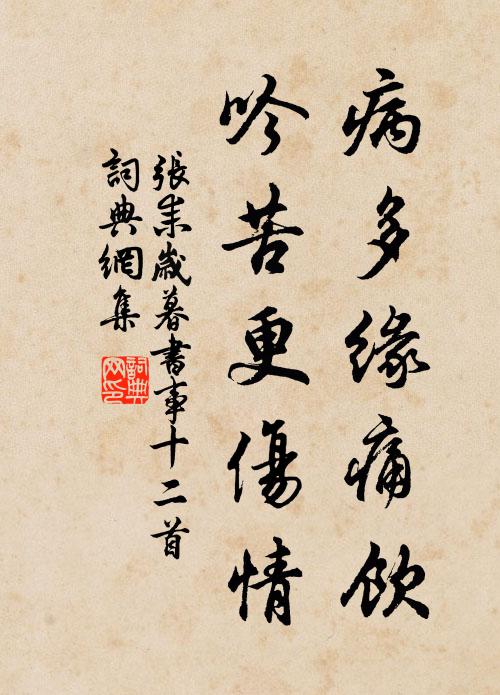 病多緣痛飲
吟苦更傷情
張耒歲暮書事十二首
詞典網集
詞典網印